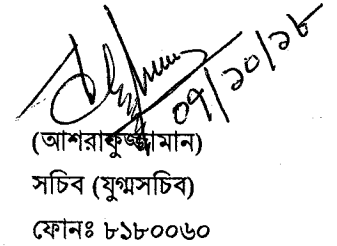 ০৭/১০/১৮
(আশরাফুজ্জামান)
সচিব (যুগ্মসচিব)
ফোনঃ ৮১৮০০৬০